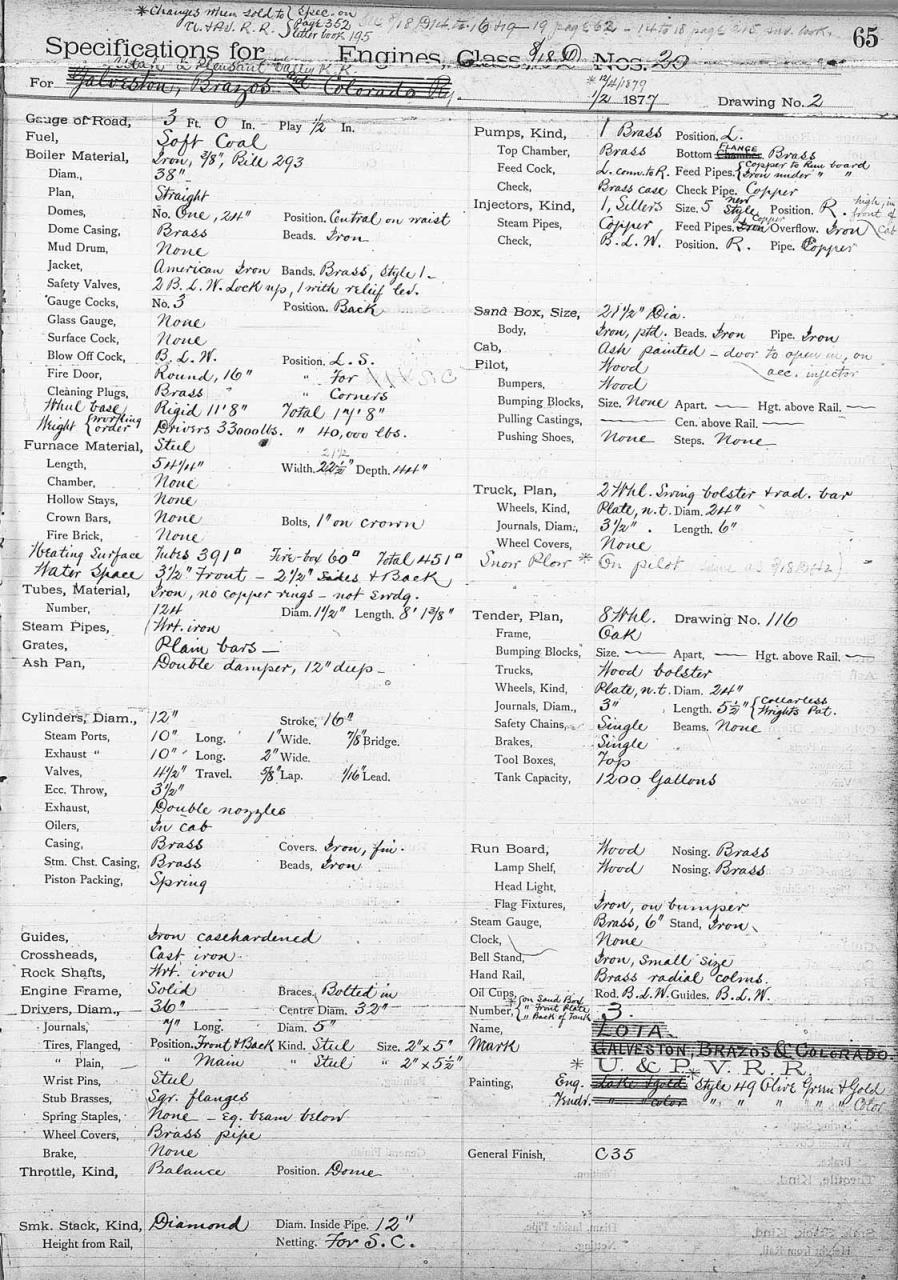 *Changes when sold to { Spec. on
U. & P.V. R. R. { page 352
{ letter book 195
65
Specifications for Engines, Class 8/18 D Nos. 20
Utah & Pleasant Valley R.R.
For Galveston, Brazos and Colorado Ry.
* 12/4/1879
1/2 1877 Drawing No. 2
Gauge of Road, 3 Ft. 0 In. Play 1/2 In.
Fuel, Soft Coal
Boiler Material, Iron, 3/8", Bill 293
Diam., 38"
Plan, Straight
Domes, No. One, 24" Position. Central on waist
Dome Casing, Brass Beads. Iron
Mud Drum, None
Jacket, American Iron Bands. Brass, Style 1
Safety Valves, 2 B. L. W. Lock up, 1 with relief lev.
Gauge Cocks, No. 3 Position. Back
Glass Gauge, None
Surface Cock, None
Blow Off Cock, B. L. W. Position. L. S.
Fire Door, Round, 16" " For
Cleaning Plugs, Brass " Corners
Wheel base Rigid 11' 8" Total 17' 8"
Weight { working order Drivers 33000 lbs. " 40,000 lbs.
Furnace Material, Steel
Length, 54 1/4" Width. 22 1/2" 21 1/2 Depth. 44"
Chamber, None
Hollow Stays, None
Crown Bars, None Bolts, 1" on crown
Fire Brick, None
Heating Surface Tubes 391□ Fire-box 60□ Total 451□
Water Space 3 1/2" Front – 2 1/2" Sides & Back
Tubes, Material, Iron, no copper rings – not swdg.
Number, 124 Diam. 1 1/2" Length. 8' 1 3/8"
Steam Pipes, Wrt. iron
Grates, Plain bars —
Ash Pan, Double damper, 12" deep –
Cylinders, Diam., 12" Stroke, 16"
Steam Ports, 10" Long. 1" Wide. 7/8" Bridge.
Exhaust " 10" Long. 2" Wide.
Valves, 4 1/2" Travel. 5/8" Lap. 1/16" Lead.
Ecc. Throw, 3 1/2"
Exhaust, Double nozzles
Oilers, In cab
Casing, Brass Covers. Iron, fin.
Stm. Chst. Casing, Brass Beads, Iron
Piston Packing, Spring
Guides, Iron casehardened
Crossheads, Cast iron
Rock Shafts, Wrt. iron
Engine Frame, Solid Braces, Bolted in
Drivers, Diam., 36" Centre Diam. 32"
Journals, 7" Long. Diam. 5"
Tires, Flanged, Position. Front & Back Kind. Steel Size. 2" x 5"
" Plain, " Main " Steel " 2" x 5 1/2"
Wrist Pins, Steel
Stub Brasses, Sqr. flanges
Spring Staples, None – Eq. beam below
Wheel Covers, Brass pipe
Brake, None
Throttle, Kind, Balance Position. Dome
Smk. Stack, Kind, Diamond Diam. Inside Pipe. 12"
Height from Rail, Netting. For S. C.
Pumps, Kind, 1 Brass Position. L.
Top Chamber, Brass Bottom Chamber FLANGE Brass
Feed Cock, L. conn. to R. Feed Pipes. { Copper to Run board
{ Iron under " "
Check, Brass case Check Pipe. Copper
Injectors, Kind, 1, Sellers Size. 5 new Style Position. R. high, in front of cab
Steam Pipes, Copper Feed Pipes. Iron Copper Overflow. Iron
Check, B. L. W. Position. R. Pipe. Copper
Sand Box, Size, 21 1/2" Dia.
Body, Iron, ptd. Beads. Iron Pipe. Iron
Cab, Ash painted – door to open in, on acc. injector
Pilot, Wood
Bumpers, Wood
Bumping Blocks, Size. None Apart. — Hgt. above Rail. —
Pulling Castings, — Cen. above Rail. —
Pushing Shoes, None Steps. None
Truck, Plan, 2 Whl. Swing bolster & rad. bar
Wheels, Kind, Plate, n.t. Diam. 24"
Journals, Diam., 3 1/2" Length. 6"
Wheel Covers, None
Snow Plow * On pilot
Tender, Plan, 8 Whl. Drawing No. 116
Frame, Oak
Bumping Blocks, Size. — Apart, — Hgt. above Rail. —
Trucks, Wood bolster
Wheels, Kind, Plate, n.t. Diam. 24"
Journals, Diam., 3" Length. 5 1/2" { Collarless
{ Wrights Pat.
Safety Chains, Single Beams. None
Brakes, Single
Tool Boxes, Top
Tank Capacity, 1200 Gallons
Run Board, Wood Nosing. Brass
Lamp Shelf, Wood Nosing. Brass
Head Light,
Flag Fixtures, Iron, on bumper
Steam Gauge, Brass, 6" Stand, Iron
Clock, None
Bell Stand, Iron, small size
Hand Rail, Brass radial colms.
Oil Cups, Rod. B. L. W. Guides. B. L. W.
Number, * { on Sand Box
" Front Plate
" Back of Tank 3.
Name, LOTA
Mark GALVESTON, BRAZOS & COLORADO.
* U. & P. V. R. R.
Painting, Eng. Lake & gold * Style 49 Olive Green & Gold
Tndr. " " color " " " " " Color
General Finish, C 35